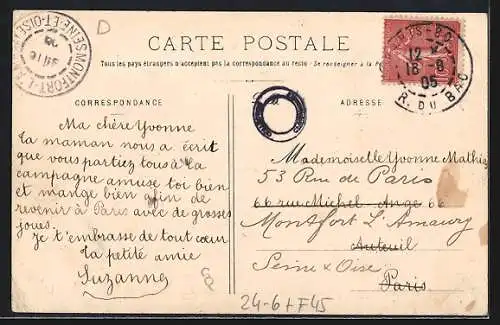 D
MONTFORT-L'A
SEINE-ET-OISE
CARTE POSTALE
Tous les pays étrangers n'acceptent pas la correspondance au recto - Se renseigner à la
CORRESPONDANCE
ADRESSE
12
18 8
05
R. DU BAC
Ma chère Yvonne
ta maman nous a écrit
que vous partiez tous à la
campagne amuse toi bien
et mange bien afin de
revenir à Paris avec de grosses
joues.
Je t'embrasse de tout cœur
ta petite amie
Suzanne
Mademoiselle Yvonne Mathieu
53 Rue de Paris
66 rue Michel-Ange 66
Montfort L'Amaury
Auteuil
Seine & Oise
Paris
24-6+F45